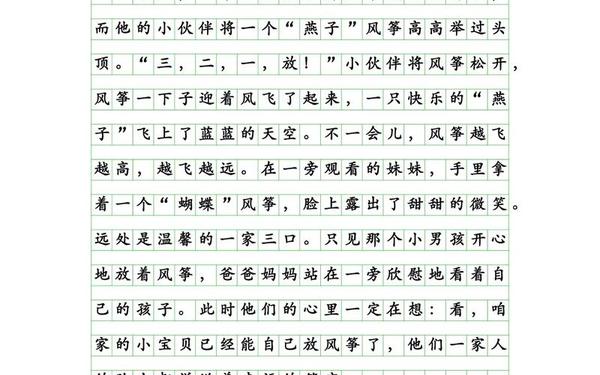 而他的小伙伴将一个“燕子”风筝高高举过头
顶。“三，二，一，放！”小伙伴将风筝松开，
风筝一下子迎着风飞了起来，一只快乐的“燕
子”飞上了蓝蓝的天空。不一会儿，风筝越飞
越高，越飞越远。在一旁观看的妹妹，手里拿
着一个“蝴蝶”风筝，脸上露出了甜甜的微笑。
远处是温馨的一家三口。只见那个小男孩开心
地放着风筝，爸爸妈妈站在一旁欣慰地看着自
己的孩子。此时他们的心里一定在想：看，咱
家的小宝贝已经能自己放风筝了，他们一家人